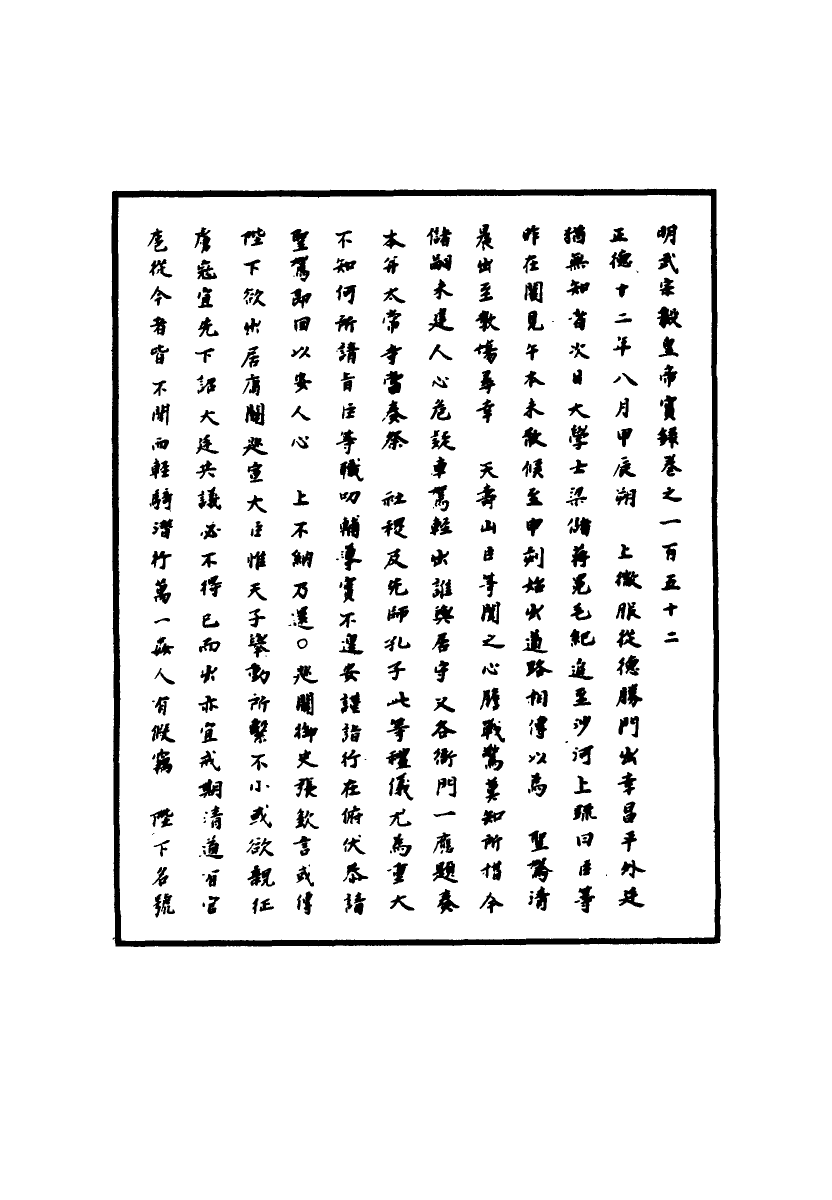 明武宗毅皇帝實錄卷之一百五十二
正德十二年八月甲辰朔　上微服從德勝門出幸昌平外廷
猶無知者次日大學士梁儲蔣冕毛紀追至沙河上疏曰臣等
昨在閣見午本未散候至申刻始出道路相傳以為　聖駕清
晨出至教場尋幸　天壽山臣等聞之心膽戰驚莫知所措今
儲嗣未建人心危疑車駕輕出誰與居守又各衙門一應題奏
本并太常寺當奏祭　社稷及先師孔子此等禮儀尤為重大
不知何所請旨臣等職叨輔導實不遑安謹詣行在俯伏恭請
聖駕即回以安人心　上不納乃還○巡關御史張欽言或傳
陛下欲出居庸關巡宣大臣惟天子舉動所繫不小或欲親征
虜寇宜先下詔大廷共議必不得已而出亦宜戒期清道百官
扈從今者皆不聞而輕騎潛行萬一姦人有假竊　陛下名號